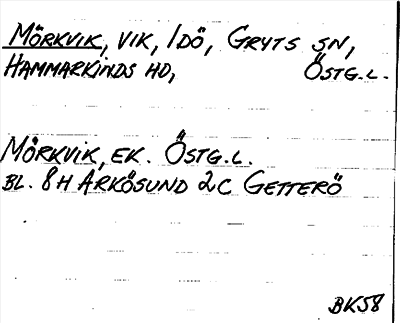 MÖRKVIK, VIK, IDÖ, GRYTS SN,
HAMMARKINDS HD, ÖSTG.L.
MÖRKVIK, EK. ÖSTG.L.
BL. 8H ARKÖSUND 2C GETTERÖ
BK58